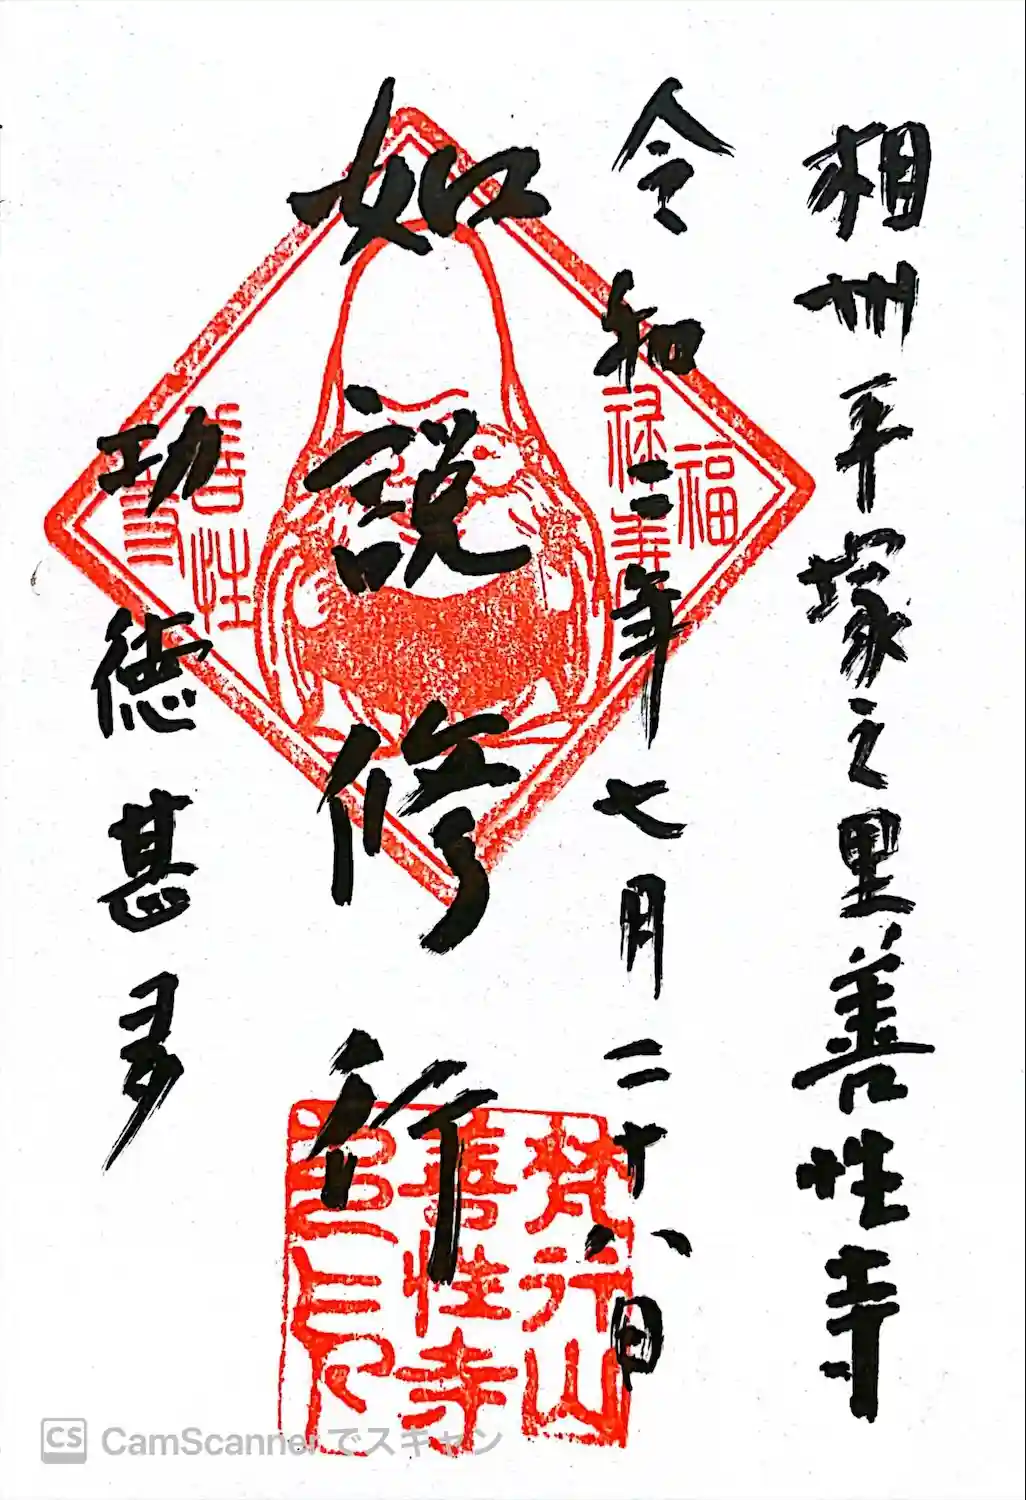 相州平塚之里善性寺
令和二年七月二十八日
如説修行
功徳甚多
福
禄寿
善性
寺
梵行山
善性寺
CamScannerでスキャン